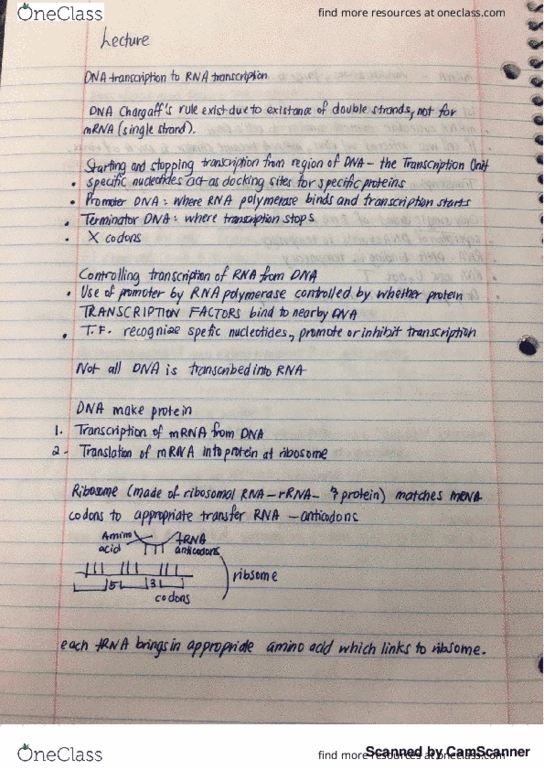 OneClass
find more resources at oneclass.com
Lecture
DNA transcription to RNA transcription
DNA Chargaff's rule exist due to existance of double strands, not for
mRNA (single strand).
Starting and stopping transcription from region of DNA - the Transcription Unit
• specific nucleotides act as docking sites for specific proteins
• Promoter DNA: where RNA polymerase binds and transcription starts
• Terminator DNA: where transcription stops
• X codons
Controlling transcription of RNA from DNA
• Use of promoter by RNA polymerase controlled by whether protein
TRANSCRIPTION FACTORS bind to nearby DNA
• T.F. recognize spefic nucleotides, promote or inhibit transcription
Not all DNA is transcribed into RNA
DNA make protein
1. Transcription of mRNA from DNA
2. Translation of mRNA into protein at ribosome
Ribosome (made of ribosomal RNA - rRNA - protein) matches mRNA
codons to appropriate transfer RNA - anticodons
Amino acid
tRNA anticodons
ribsome
codons
each tRNA brings in appropriate amino acid which links to ribsome.
OneClass
find more resources at oneclass.com
Scanned by CamScanner